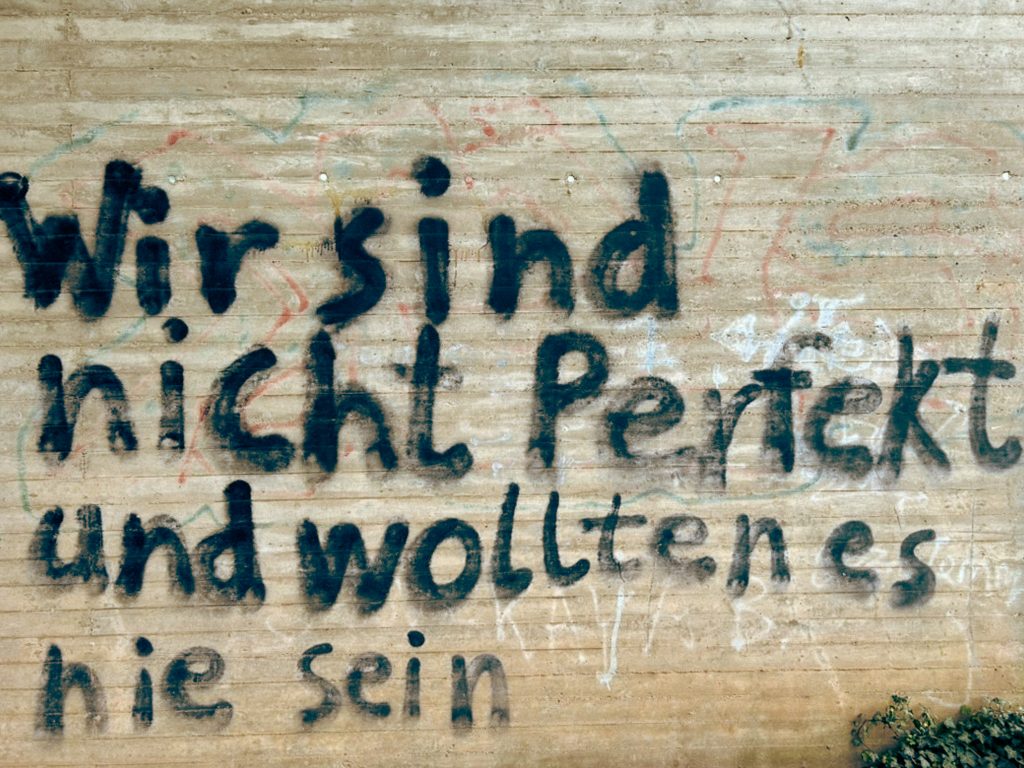 Wir sind
nicht Perfekt
und wollten es
nie sein